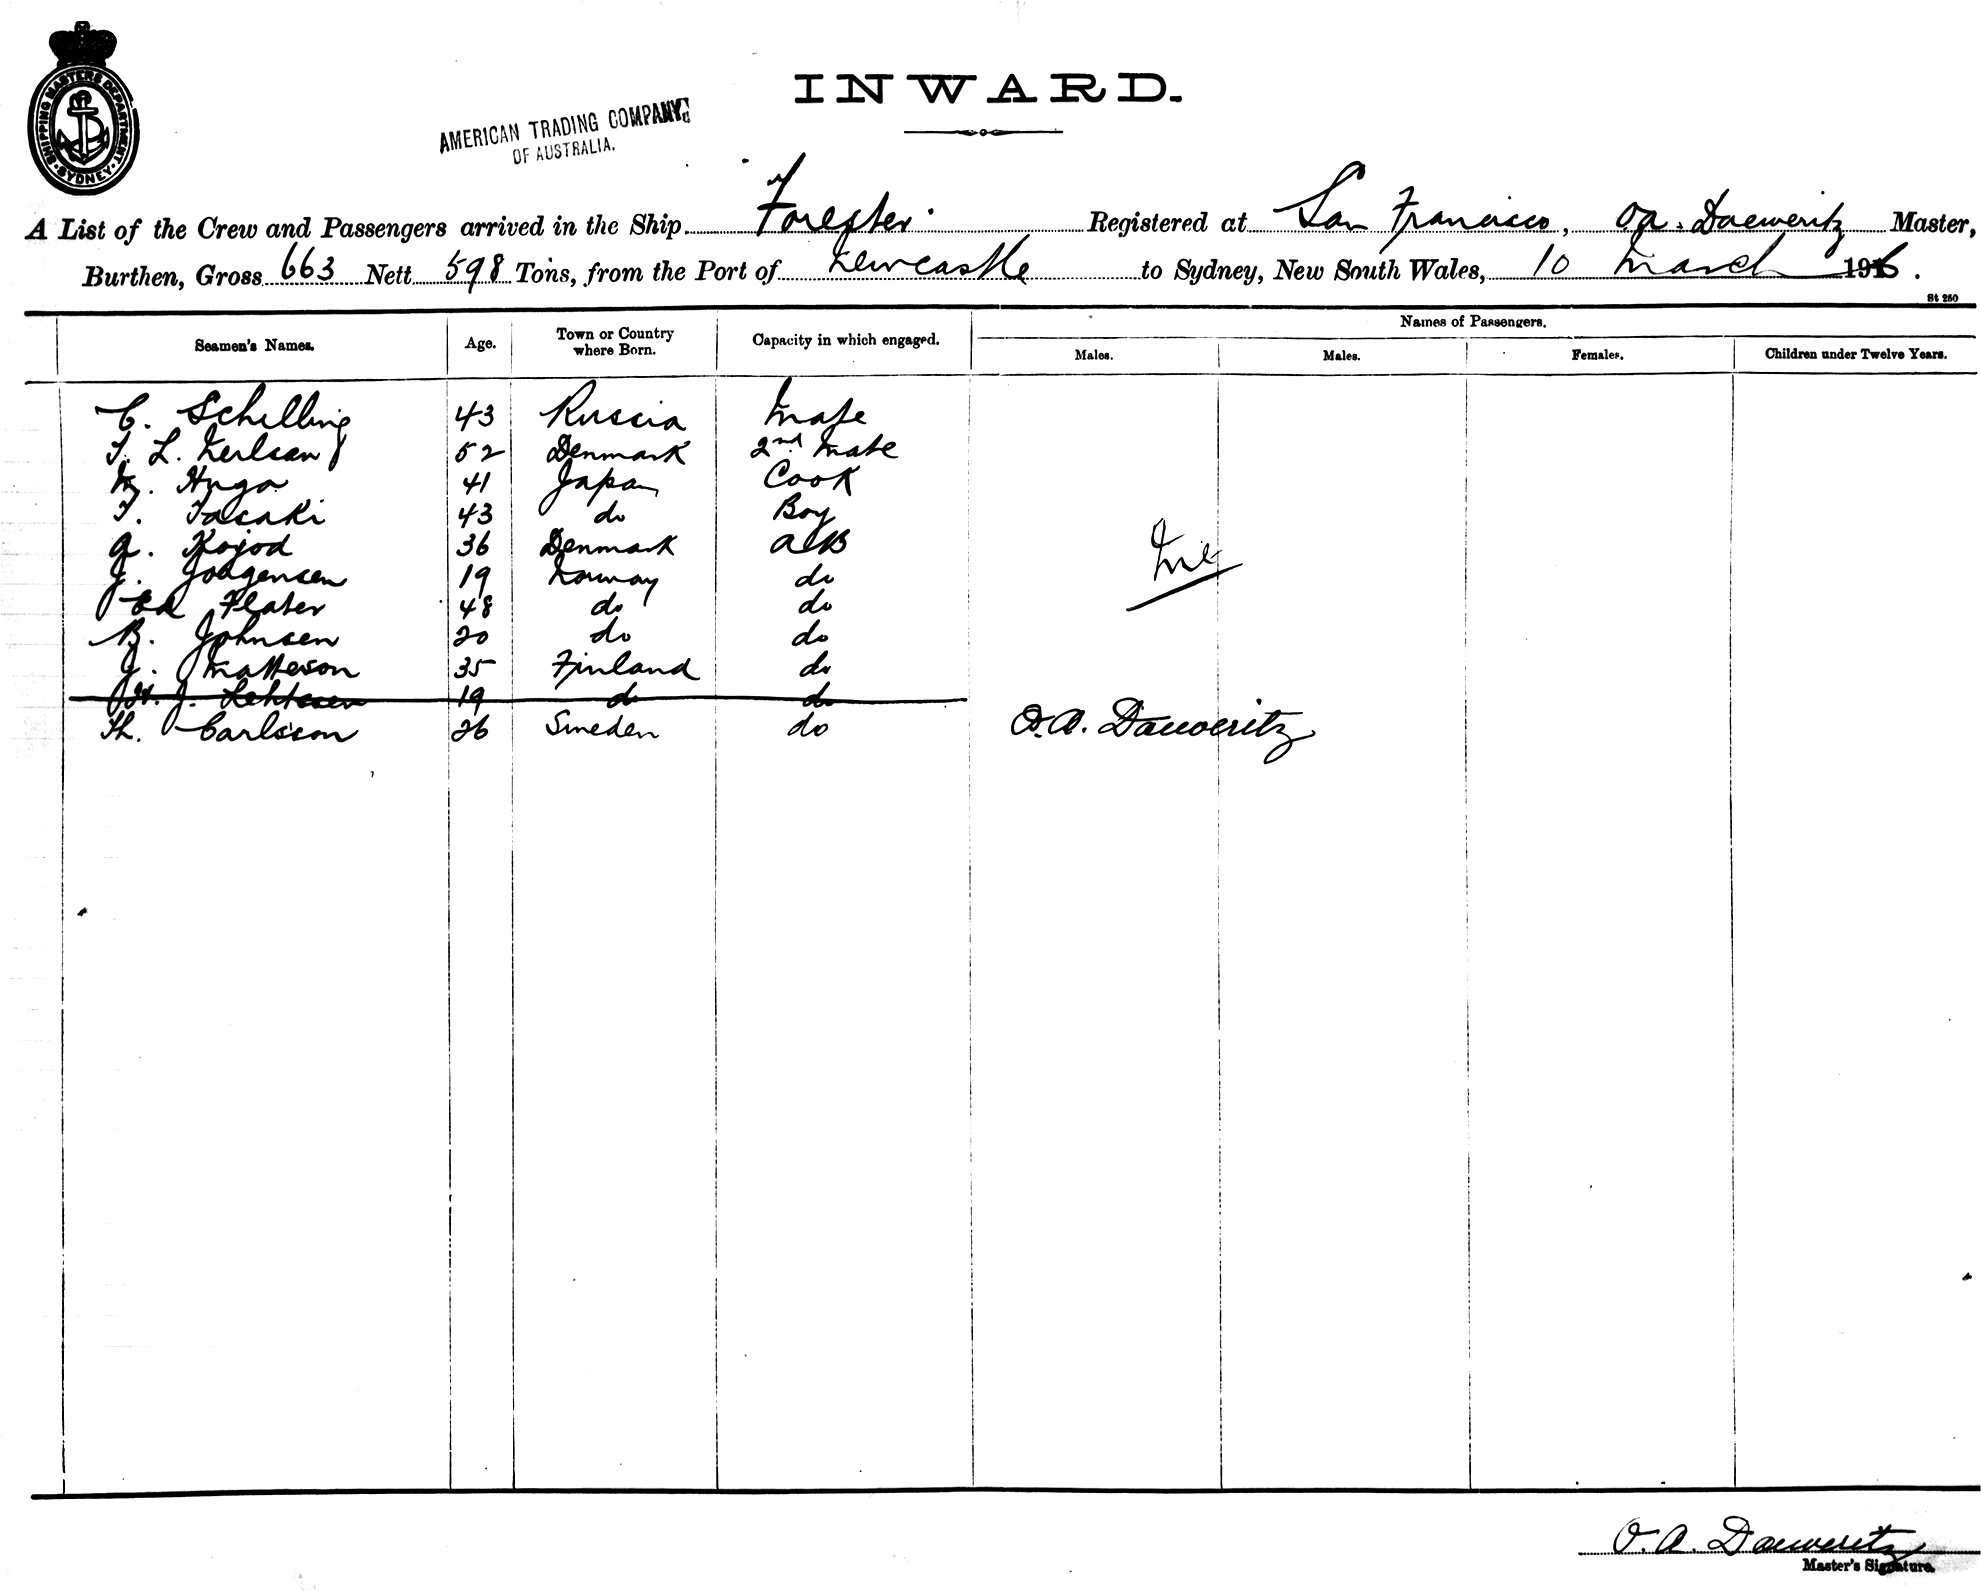 SHIPPING MASTERS DEPARTMENT
SYDNEY
INWARD.
AMERICAN TRADING COMPANY
OF AUSTRALIA.
A List of the Crew and Passengers arrived in the Ship Forester Registered at San Francisco, O.A. Daeweritz Master,
Burthen, Gross 663 Nett 598 Tons, from the Port of Newcastle to Sydney, New South Wales, 10 March 1916.
St 250
Names of Passengers.
Seamen's Names. Age. Town or Country where Born. Capacity in which engaged. Males. Males. Females. Children under Twelve Years.
C. Schilling 43 Russia Mate
L. 52 Denmark 2nd Mate
Hugo 41 Japan Cook
T. Tasaki 43 do Boy
A. Kojod 36 Denmark AB
J. Jorgensen 19 Norway do
Ed Flater 48 do do
B. Johnsen 20 do do
J. Matteson 35 Finland do
H. J. Lehtesen 19 do do
Th. Carlsson 26 Sweden do
Nil
O.A. Daeweritz
O.A. Daeweritz
Master's Signature.